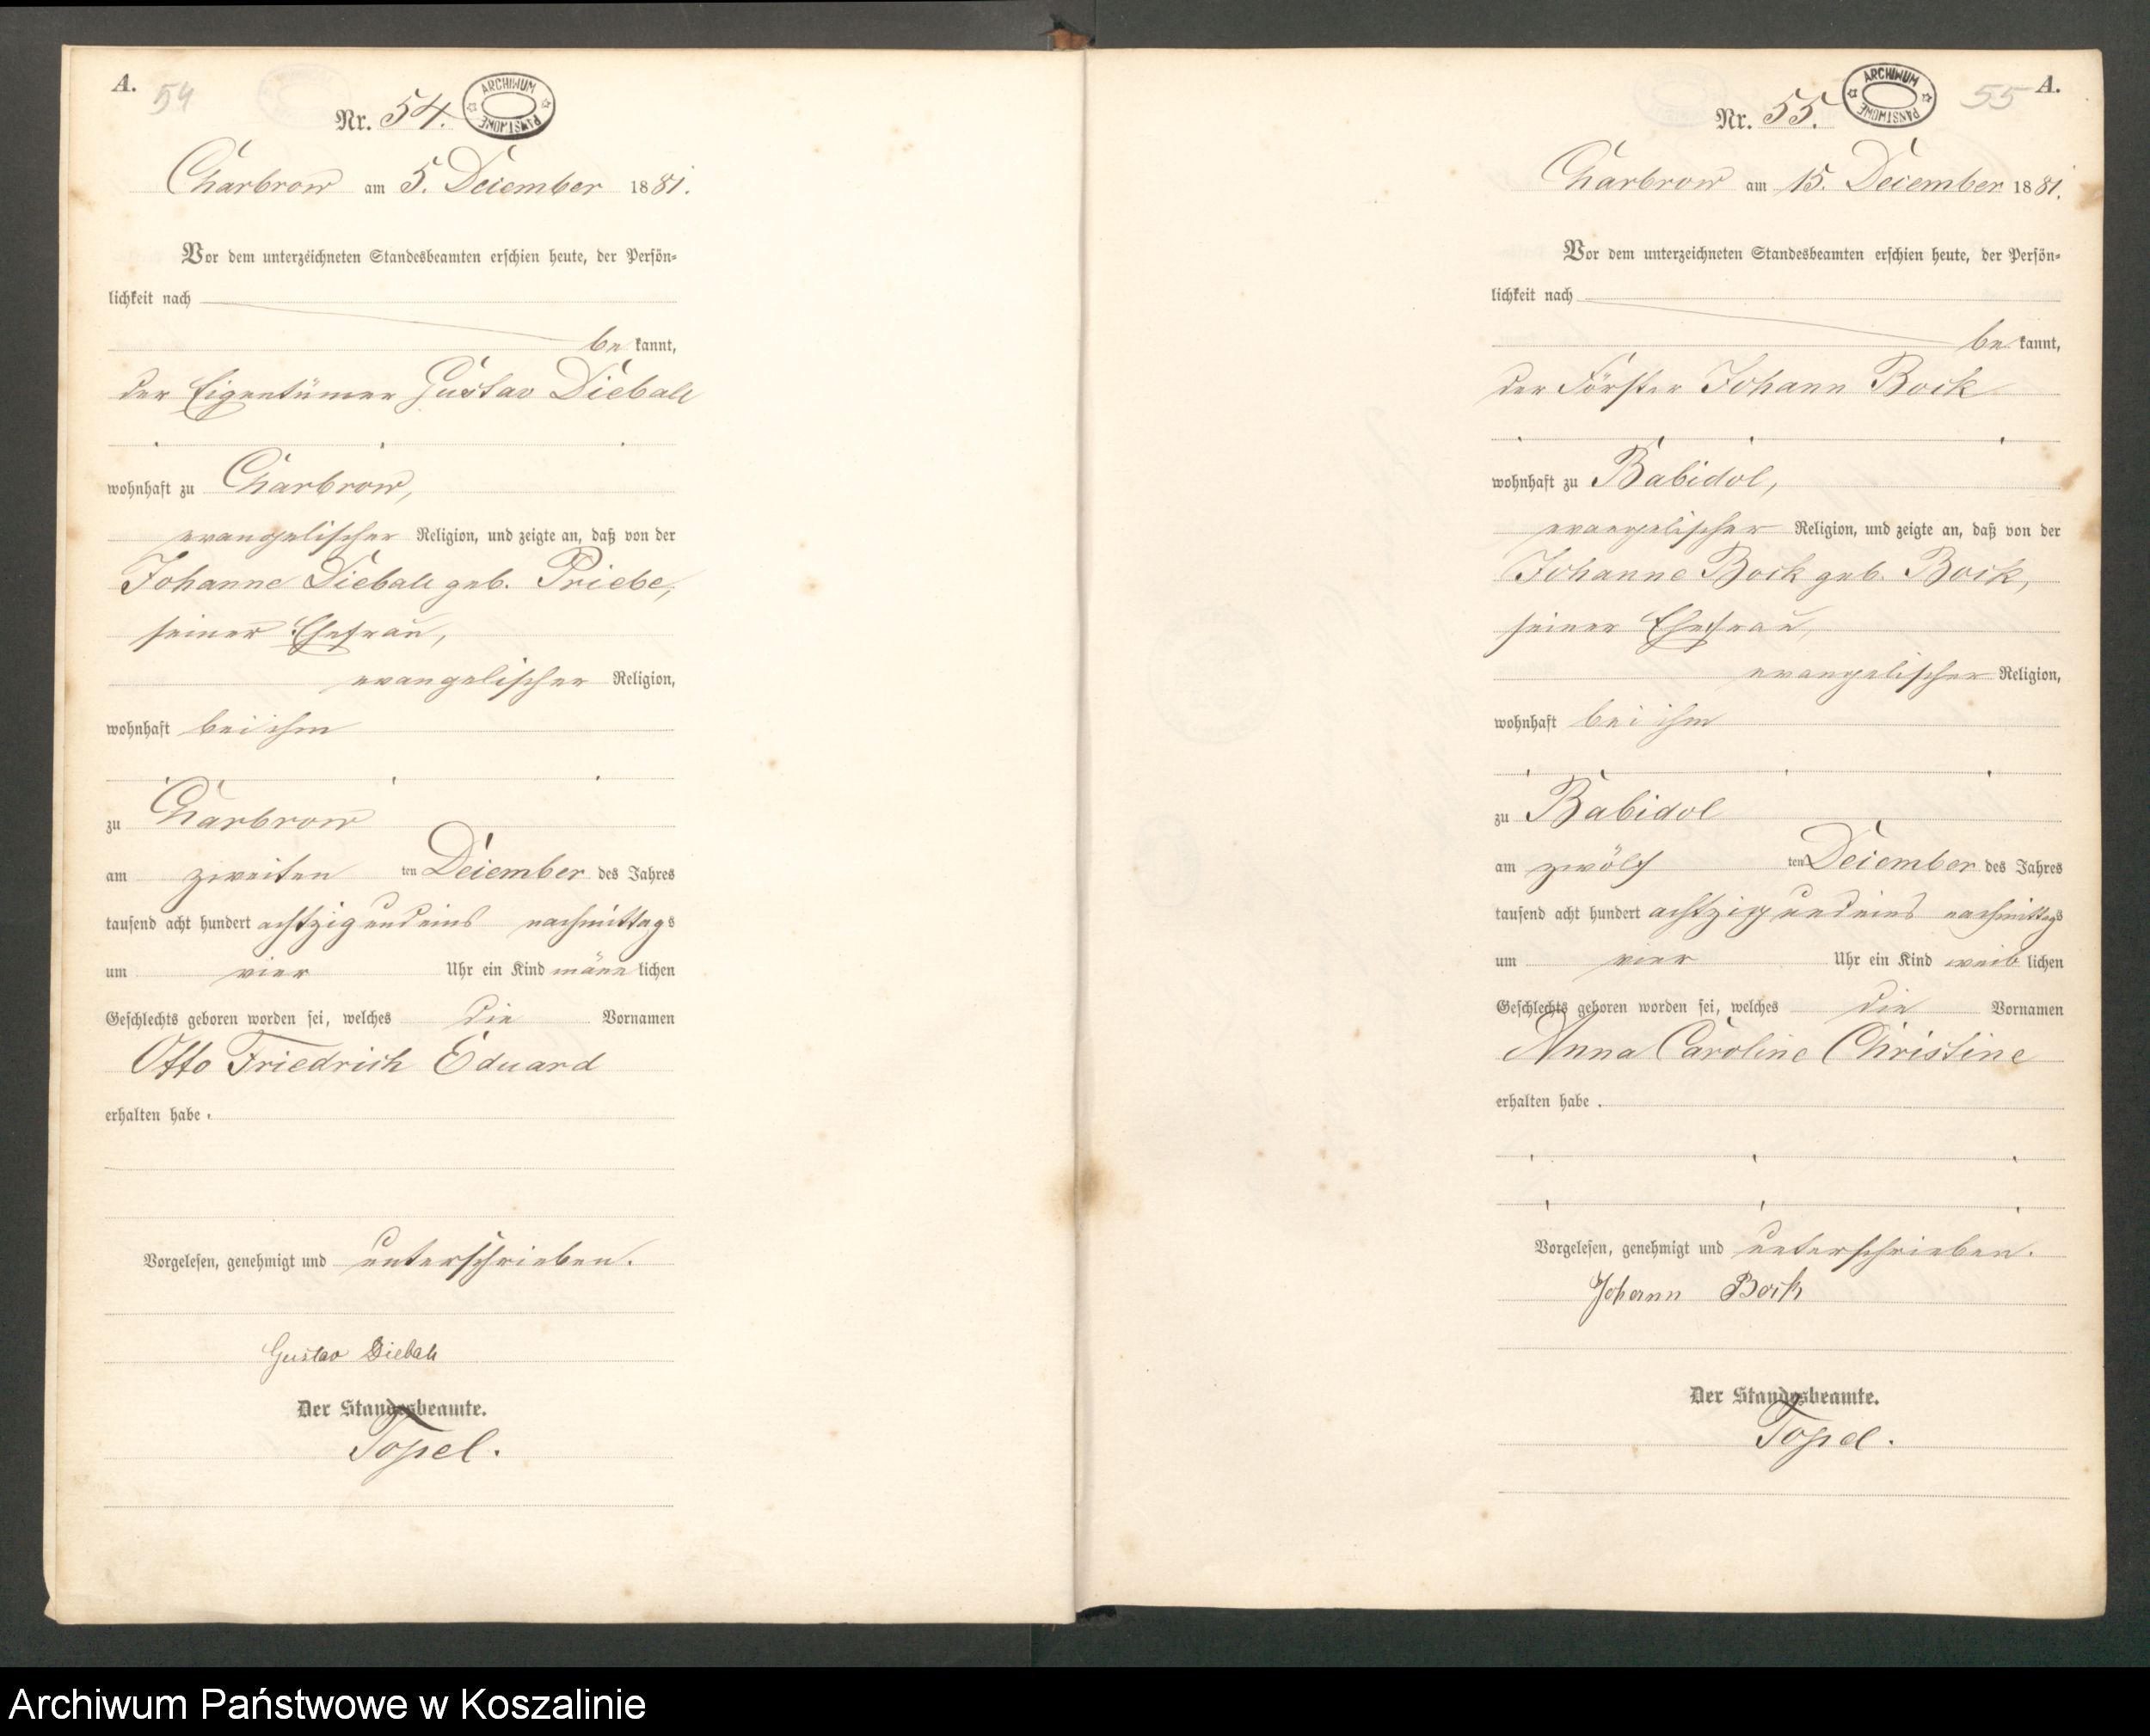 A.
54
Nr. 54.
ARCHIWUM PAŃSTWOWE
Charbrow am 5. December 1881.
Vor dem unterzeichneten Standesbeamten erschien heute, der Persön-
lichkeit nach
be kannt,
der Eigentümer Gustav Dieball
wohnhaft zu Charbrow,
evangelischer Religion, und zeigte an, daß von der
Johanne Dieball geb. Priebe,
seiner Ehefrau,
evangelischer Religion,
wohnhaft bei ihm
zu Charbrow
am zweiten ten December des Jahres
tausend acht hundert achtzig und eins nachmittags
um vier Uhr ein Kind männ lichen
Geschlechts geboren worden sei, welches die Vornamen
Otto Friedrich Eduard
erhalten habe.
Vorgelesen, genehmigt und unterschrieben.
Gustav Dieball
Der Standesbeamte.
Topel.
A.
55
Nr. 55.
ARCHIWUM PAŃSTWOWE
Charbrow am 15. December 1881.
Vor dem unterzeichneten Standesbeamten erschien heute, der Persön-
lichkeit nach
be kannt,
der Förster Johann Bock
wohnhaft zu Babidol,
evangelischer Religion, und zeigte an, daß von der
Johanne Bock geb. Bock,
seiner Ehefrau,
evangelischer Religion,
wohnhaft bei ihm
zu Babidol
am zwölf ten December des Jahres
tausend acht hundert achtzig und eins nachmittags
um vier Uhr ein Kind weib lichen
Geschlechts geboren worden sei, welches die Vornamen
Anna Caroline Christine
erhalten habe.
Vorgelesen, genehmigt und unterschrieben.
Johann Bock
Der Standesbeamte.
Topel.
Archiwum Państwowe w Koszalinie